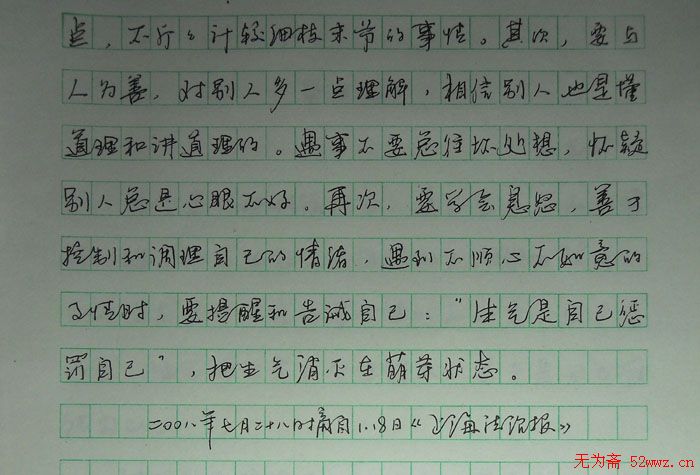 点，不斤斤计较细枝末节的事情。其次，要与
人为善，对别人多一点理解，相信别人也是懂
道理和讲道理的。遇事不要总往坏处想，怀疑
别人总是心眼不好。再次，要学会息怒，善于
控制和调理自己的情绪，遇到不顺心不如意的
事情时，要提醒和告诫自己："生气是自己惩
罚自己"，把生气消灭在萌芽状态。
二00八年七月二十八日摘自1.18日《上海法治报》
无为斋 52wwz.cn